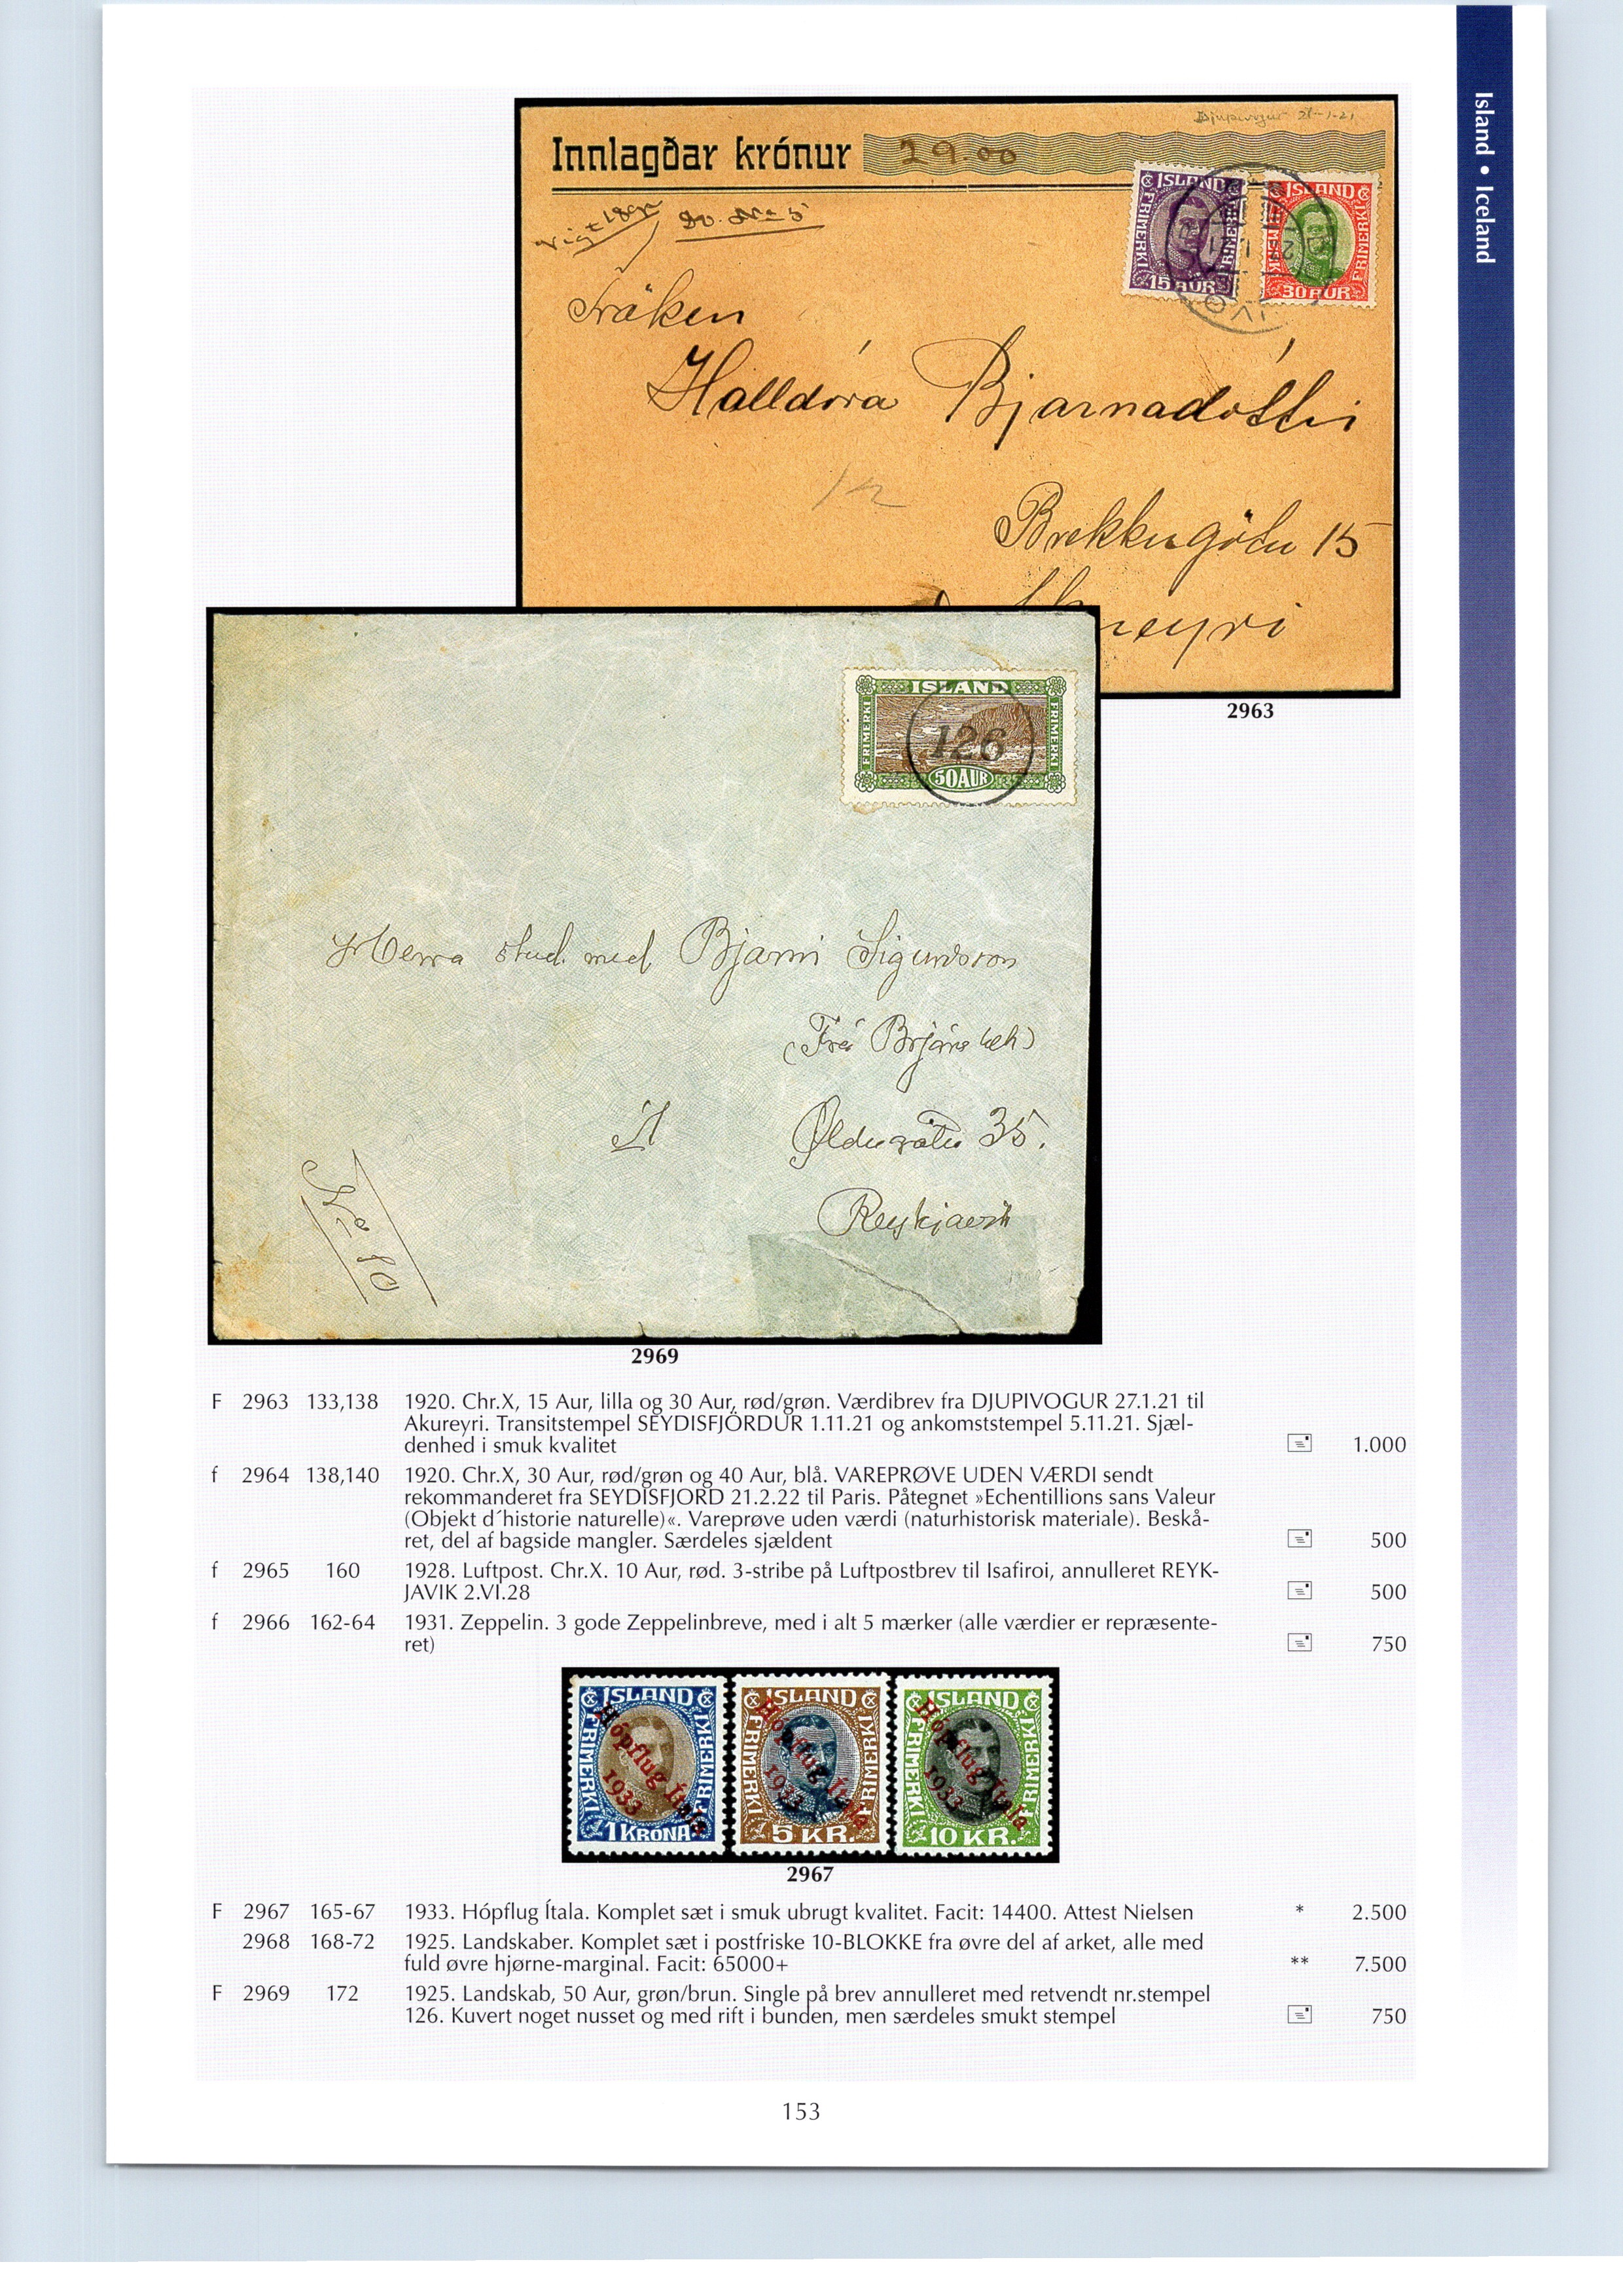 Island • Iceland
Djupivogur 21-1-21
Innlagðar krónur 29.00
No 5
ISLAND ISLAND
FRIMERKI FRIMERKI FRIMERKI
15 AUR 30 AUR
Fröken
Halldóra Bjarnadóttir
Brekkugötu 15
Akureyri
2963
ISLAND
FRIMERKI 126 FRIMERKI
50 AUR
Herra stud. med. Bjarni Sigurdsson
(Frá Brjánslæk)
Öldugötu 35.
Reykjavik
No 10
2969
F 2963 133,138 1920. Chr.X, 15 Aur, lilla og 30 Aur, rød/grøn. Værdibrev fra DJUPIVOGUR 27.1.21 til
Akureyri. Transitstempel SEYDISFJÖRDUR 1.11.21 og ankomststempel 5.11.21. Sjæl-
denhed i smuk kvalitet 1.000
f 2964 138,140 1920. Chr.X, 30 Aur, rød/grøn og 40 Aur, blå. VAREPRØVE UDEN VÆRDI sendt
rekommanderet fra SEYDISFJORD 21.2.22 til Paris. Påtegnet »Echentillions sans Valeur
(Objekt d´historie naturelle)«. Vareprøve uden værdi (naturhistorisk materiale). Beskå-
ret, del af bagside mangler. Særdeles sjældent 500
f 2965 160 1928. Luftpost. Chr.X. 10 Aur, rød. 3-stribe på Luftpostbrev til Isafiroi, annulleret REYK-
JAVIK 2.VI.28 500
f 2966 162-64 1931. Zeppelin. 3 gode Zeppelinbreve, med i alt 5 mærker (alle værdier er repræsente-
ret) 750
ISLAND ISLAND ISLAND
FRIMERKI FRIMERKI FRIMERKI FRIMERKI FRIMERKI FRIMERKI
Hópflug Ítala Hópflug Ítala Hópflug Ítala
1933 1933 1933
1 KRÓNA 5 KR. 10 KR.
2967
F 2967 165-67 1933. Hópflug Ítala. Komplet sæt i smuk ubrugt kvalitet. Facit: 14400. Attest Nielsen * 2.500
2968 168-72 1925. Landskaber. Komplet sæt i postfriske 10-BLOKKE fra øvre del af arket, alle med
fuld øvre hjørne-marginal. Facit: 65000+ ** 7.500
F 2969 172 1925. Landskab, 50 Aur, grøn/brun. Single på brev annulleret med retvendt nr.stempel
126. Kuvert noget nusset og med rift i bunden, men særdeles smukt stempel 750
153